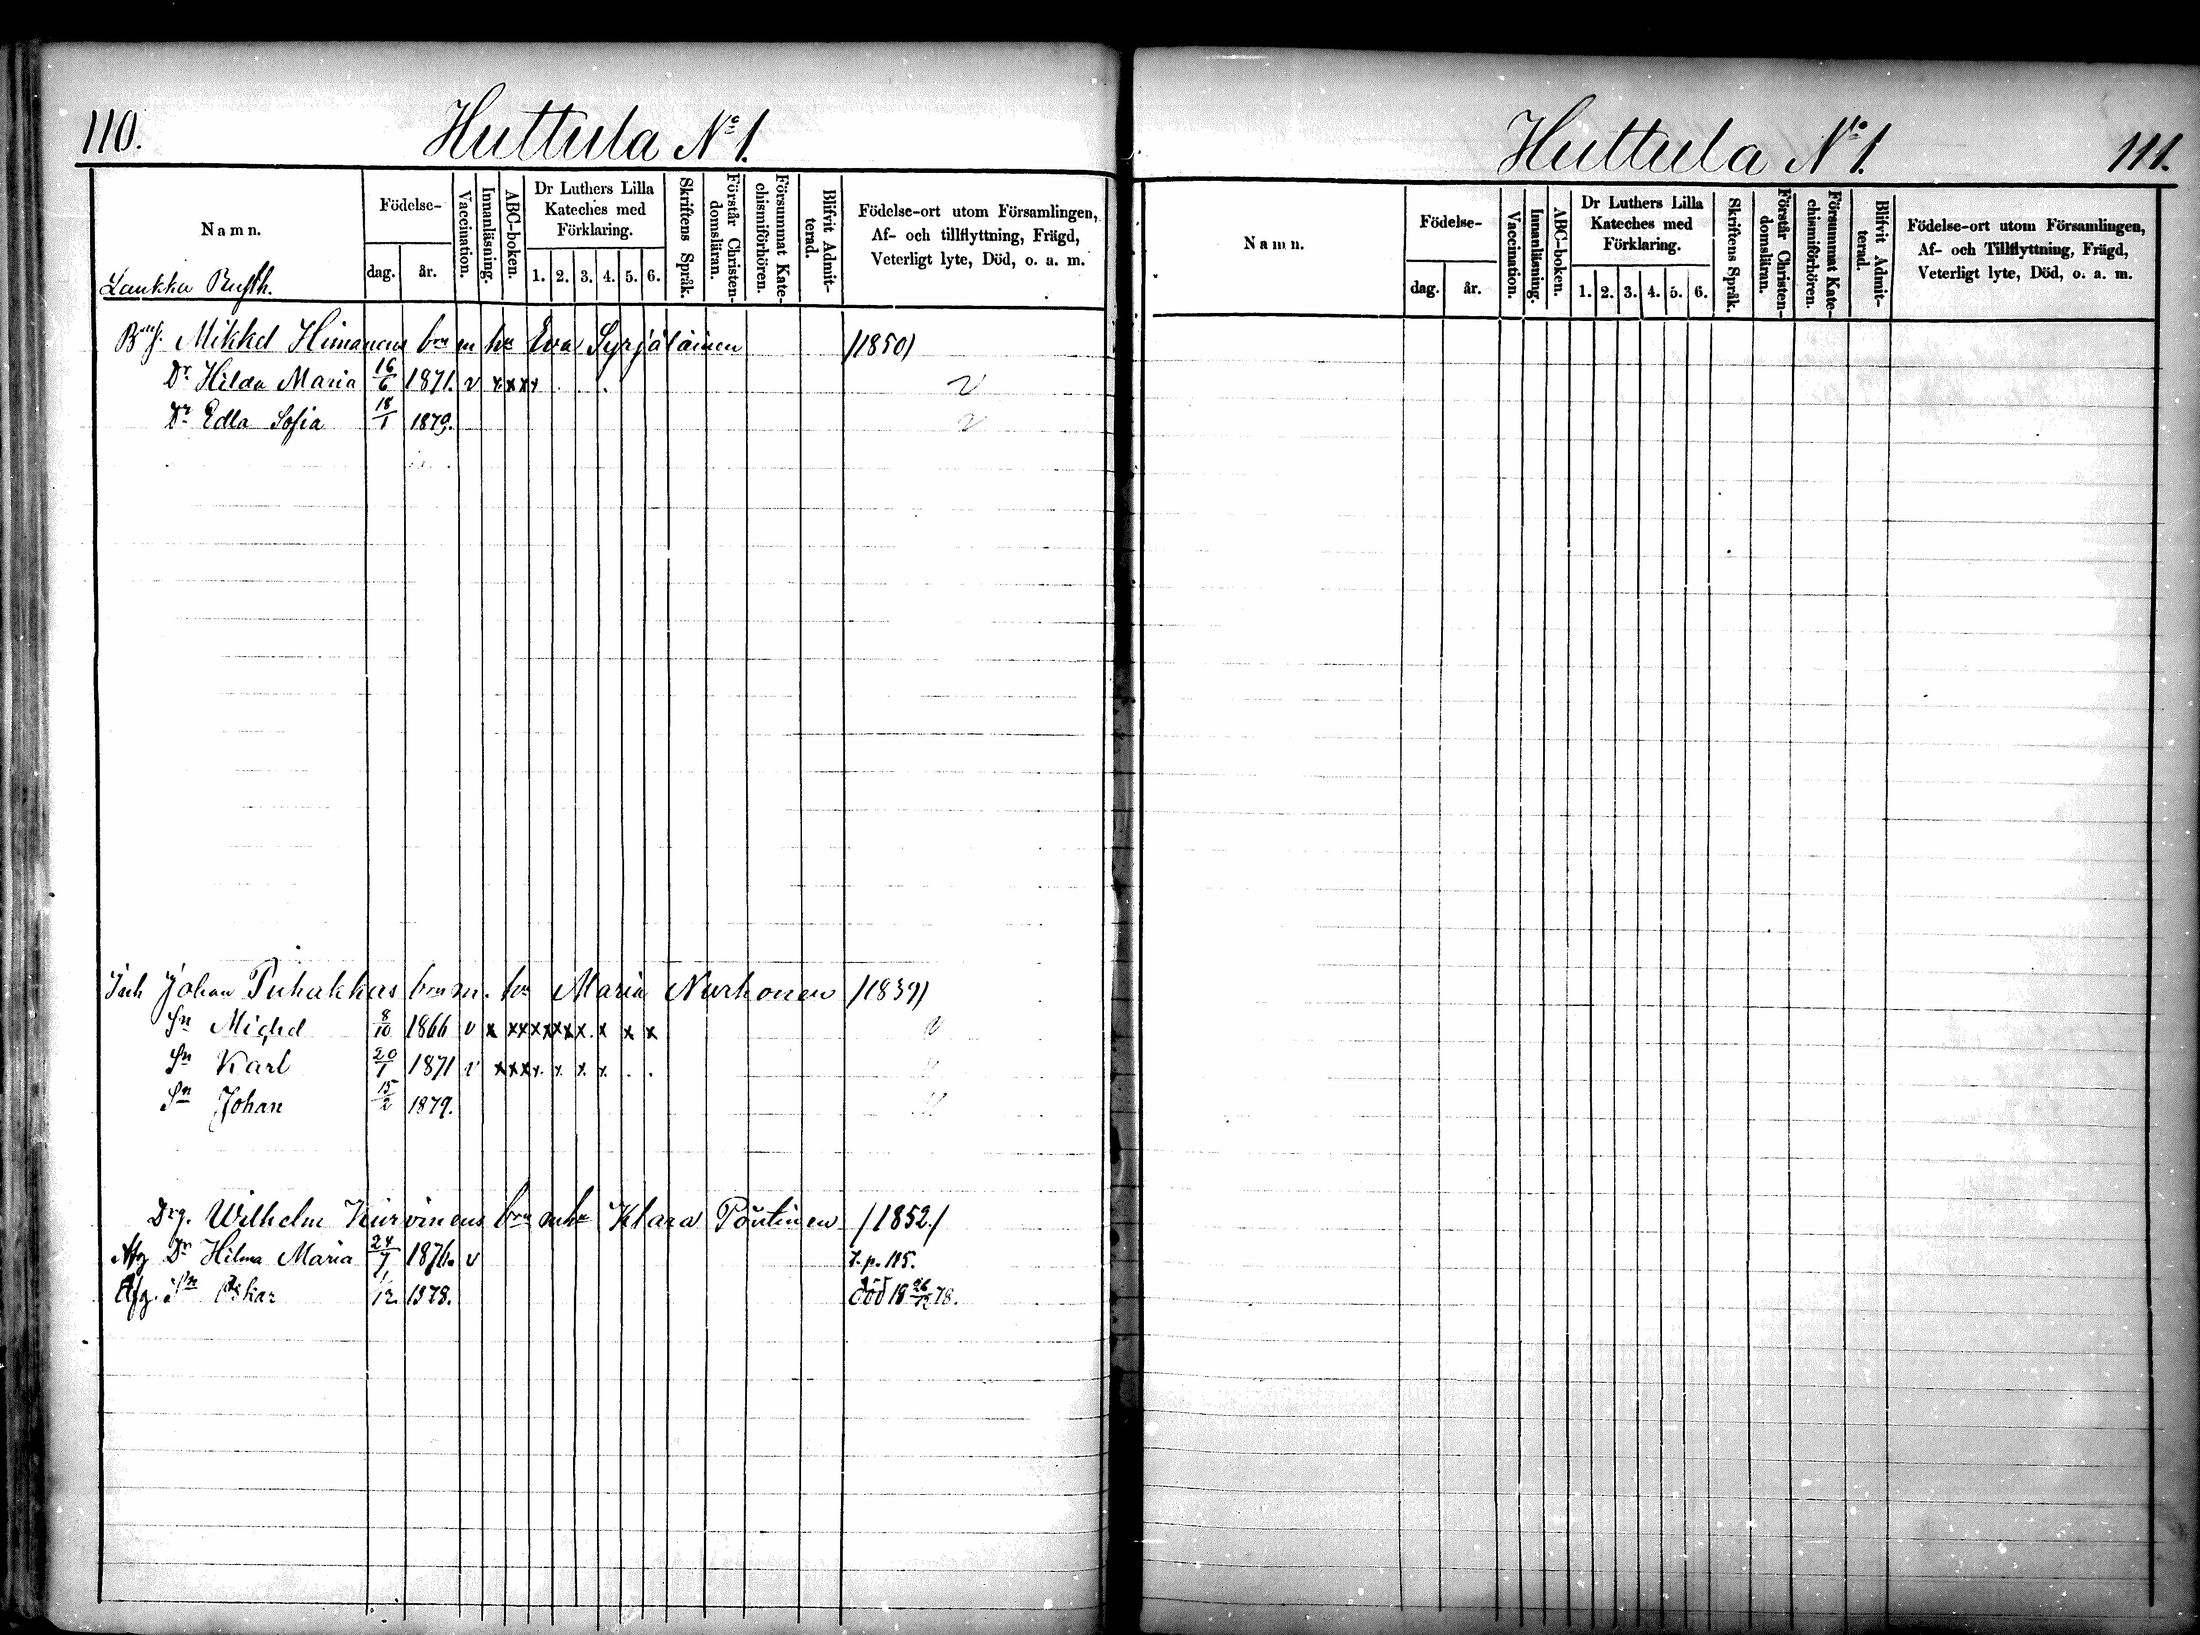 110.
Huttula No 1.
Namn.
Födelse-
dag. år.
Vaccination.
Innanläsning.
ABC-boken.
Dr Luthers Lilla Kateches med Förklaring.
1. 2. 3. 4. 5. 6.
Skriftens Språk.
Förstår Christen-domsläran.
Försummat Kate-chismiförhören.
Blifvit Admit-terad.
Födelse-ort utom Församlingen,
Af- och tillflyttning, Frägd,
Veterligt lyte, Död, o. a. m.
Laukka Rusth.
Mikkel Himanens barn m hu Eva Syrjäläinen /1850/
Dr Hilda Maria 16/6 1871. v x x x x
Dr Edla Sofia 18/1 1879.
Inh Johan Puhakkas barn m. hu Maria Nurhonen /1839/
Sn Michel 8/10 1866 v x xx x x x x x. x x x
Sn Karl 20/1 1871 v x x x x. x. x. x.
Sn Johan 15/2 1879.
Drg. Wilhelm Kurvinens barn m hu Klara Pöntinen /1852./
Afg Dr Hilma Maria 24/7 1876. v T. p. 115.
Afg. Sn Oskar 1/12 1878. död 18 26/12 78.
Huttula No 1.
111.
Namn.
Födelse-
dag. år.
Vaccination.
Innanläsning.
ABC-boken.
Dr Luthers Lilla Kateches med Förklaring.
1. 2. 3. 4. 5. 6.
Skriftens Språk.
Förstår Christen-domsläran.
Försummat Kate-chismiförhören.
Blifvit Admit-terad.
Födelse-ort utom Församlingen,
Af- och Tillflyttning, Frägd,
Veterligt lyte, Död, o. a. m.